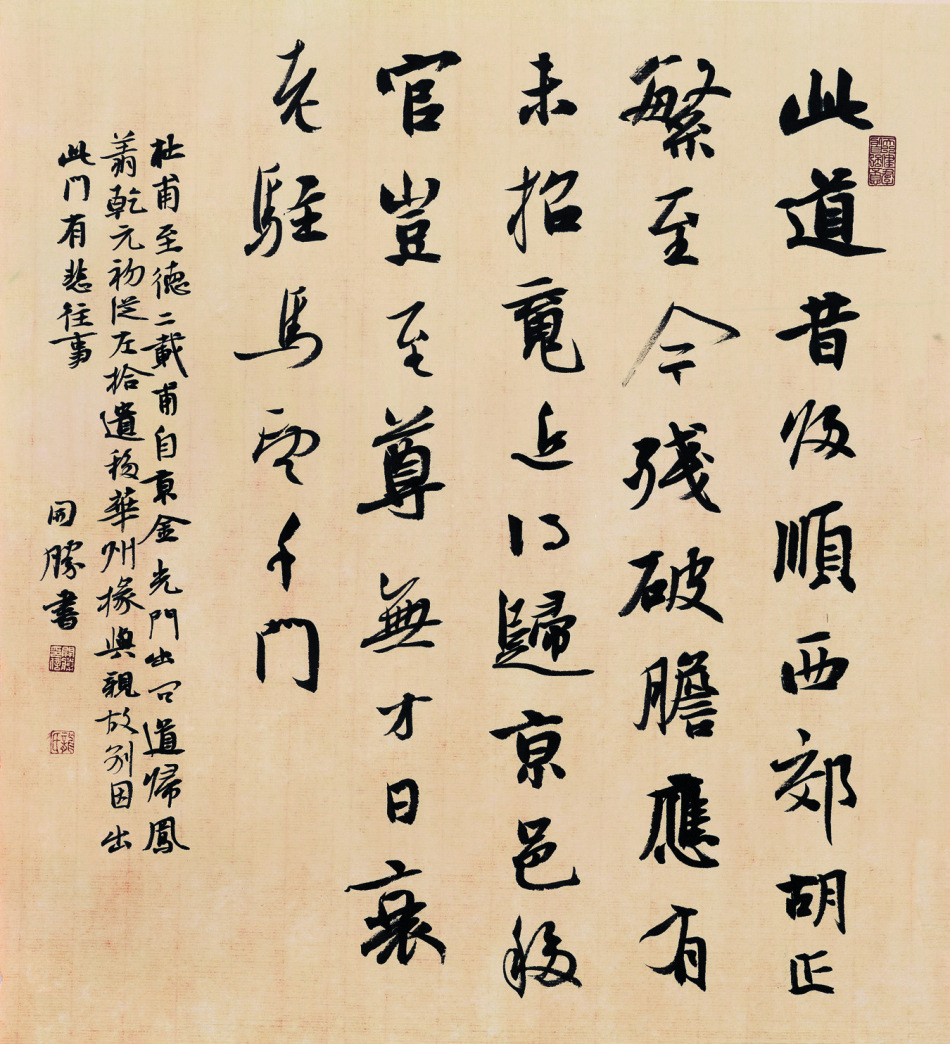 此道昔歸順西郊胡正
繁至今殘破膽應有
未招魂近得歸京邑移
官豈至尊無才日衰
老駐馬望千門
杜甫至德二載甫自京金光門出間道歸鳳
翔乾元初從左拾遺移華州掾與親故別因出
此門有悲往事
開勝書